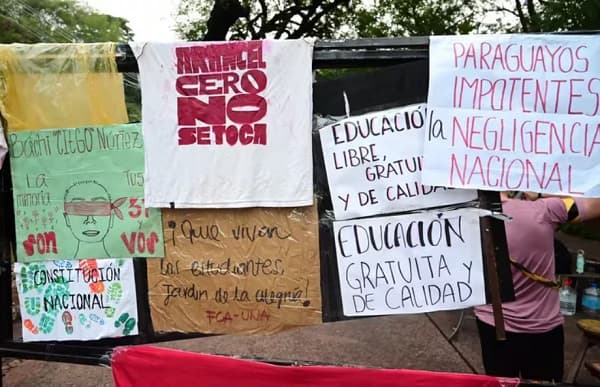 ARANCEL
CERO
NO
SE TOCA
PARAGUAYOS
IMPOTENTES
a la NEGLIGENCIA
NACIONAL
EDUCACIÓN
LIBRE, GRATUITA
Y DE CALIDAD
Bachi "CIEGO" Nuñez
La
minoria
son
Tus
31
vos
¡Que vivan
los estudiantes,
Jardin de la alegria!
FCA-UNA
EDUCACIÓN
GRATUITA Y
DE CALIDAD
CONSTITUCIÓN
NACIONAL